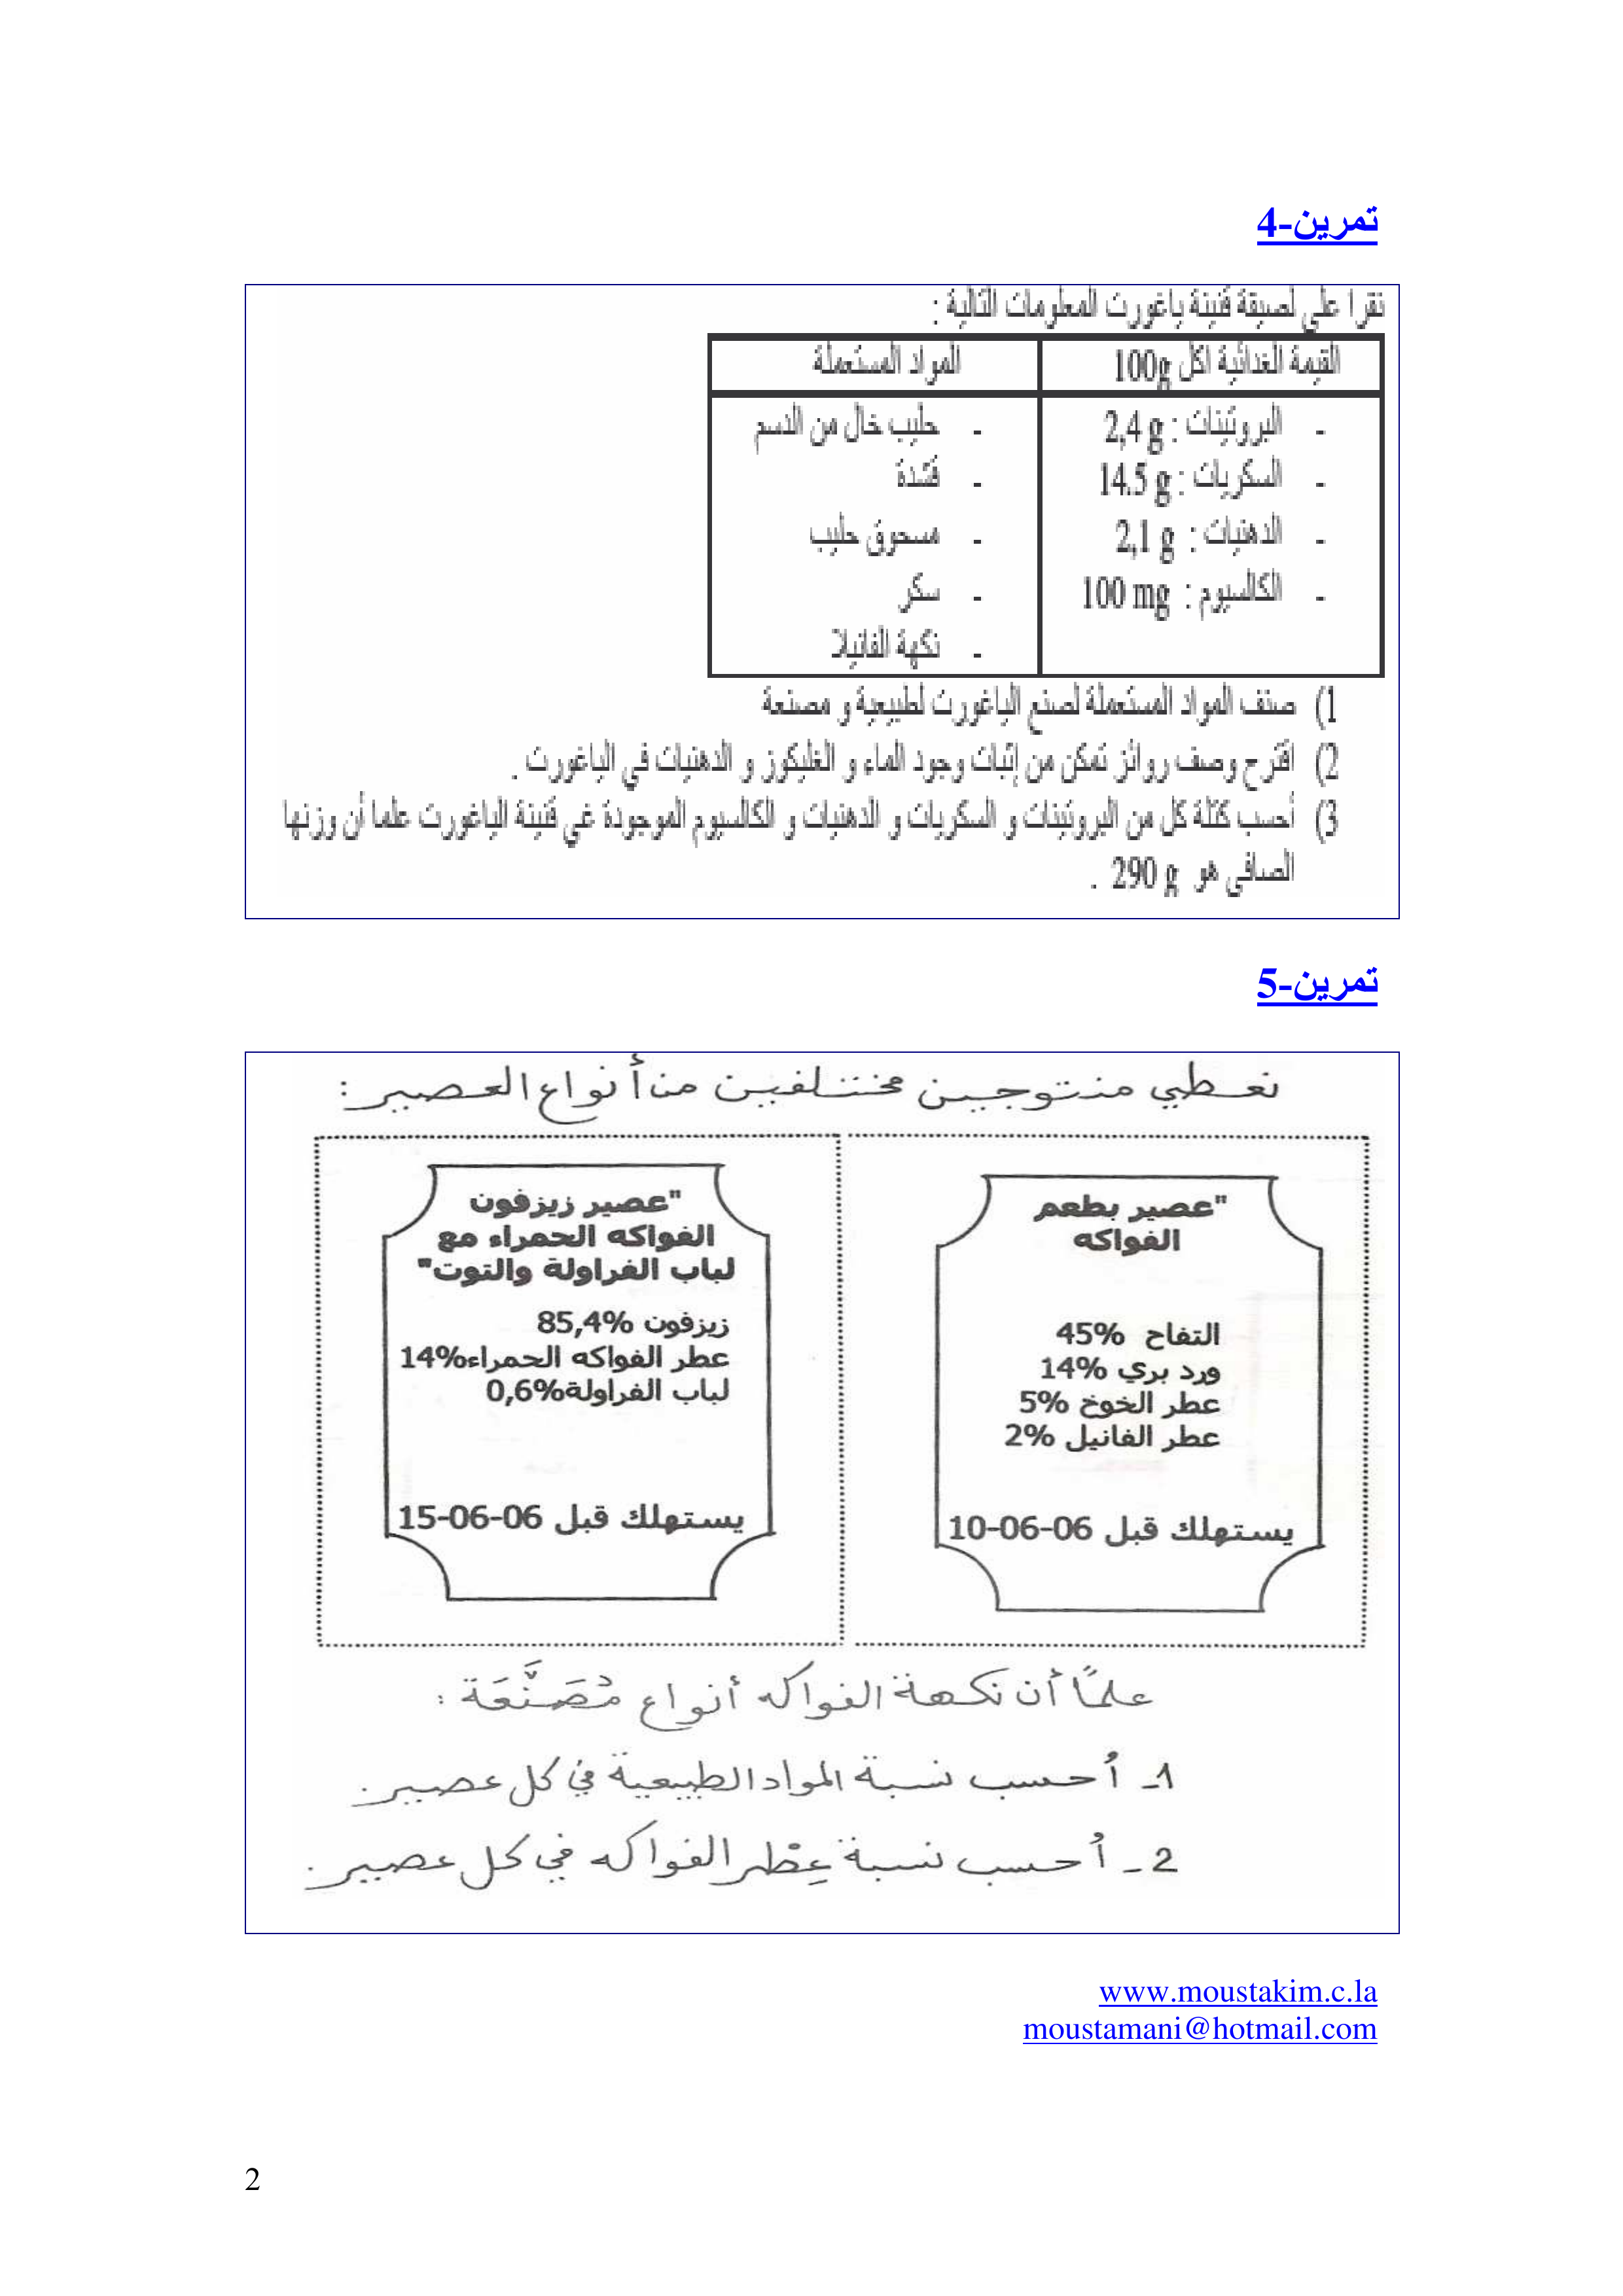 تمرين-4
نقرا على لصيقة قنينة ياغورت المعلومات التالية :
القيمة الغدائية لكل 100g
- البروتينات : 2,4 g
- السكريات : 14.5 g
- الدهنيات : 2,1 g
- الكالسيوم : 100 mg
المواد المستعملة
- حليب خال من الدسم
- قشدة
- مسحوق حليب
- سكر
- نكهة الفانيلا
1) صنف المواد المستعملة لصنع الياغورت لطبيعية و مصنعة
2) اقترح وصف روائز تمكن من إثبات وجود الماء و الغليكوز و الدهنيات في الياغورت .
3) أحسب كتلة كل من البروتينات و السكريات و الدهنيات و الكالسيوم الموجودة غي قنينة الياغورت علما أن وزنها
الصافي هو 290 g .
تمرين-5
نعطي منتوجين مختلفين من أنواع العصير:
"عصير بطعم
الفواكه
التفاح 45%
ورد بري 14%
عطر الخوخ 5%
عطر الفانيل 2%
يستهلك قبل 06-06-10
"عصير زيزفون
الفواكه الحمراء مع
لباب الفراولة والتوت"
زيزفون 85,4%
عطر الفواكه الحمراء14%
لباب الفراولة0,6%
يستهلك قبل 06-06-15
علمًا أن نكهة الفواكه أنواع مُصَنَّعَة :
1ـ أحسب نسبة المواد الطبيعية في كل عصير.
2ـ أحسب نسبة عِطْر الفواكه في كل عصير.
www.moustakim.c.la
moustamani@hotmail.com
2